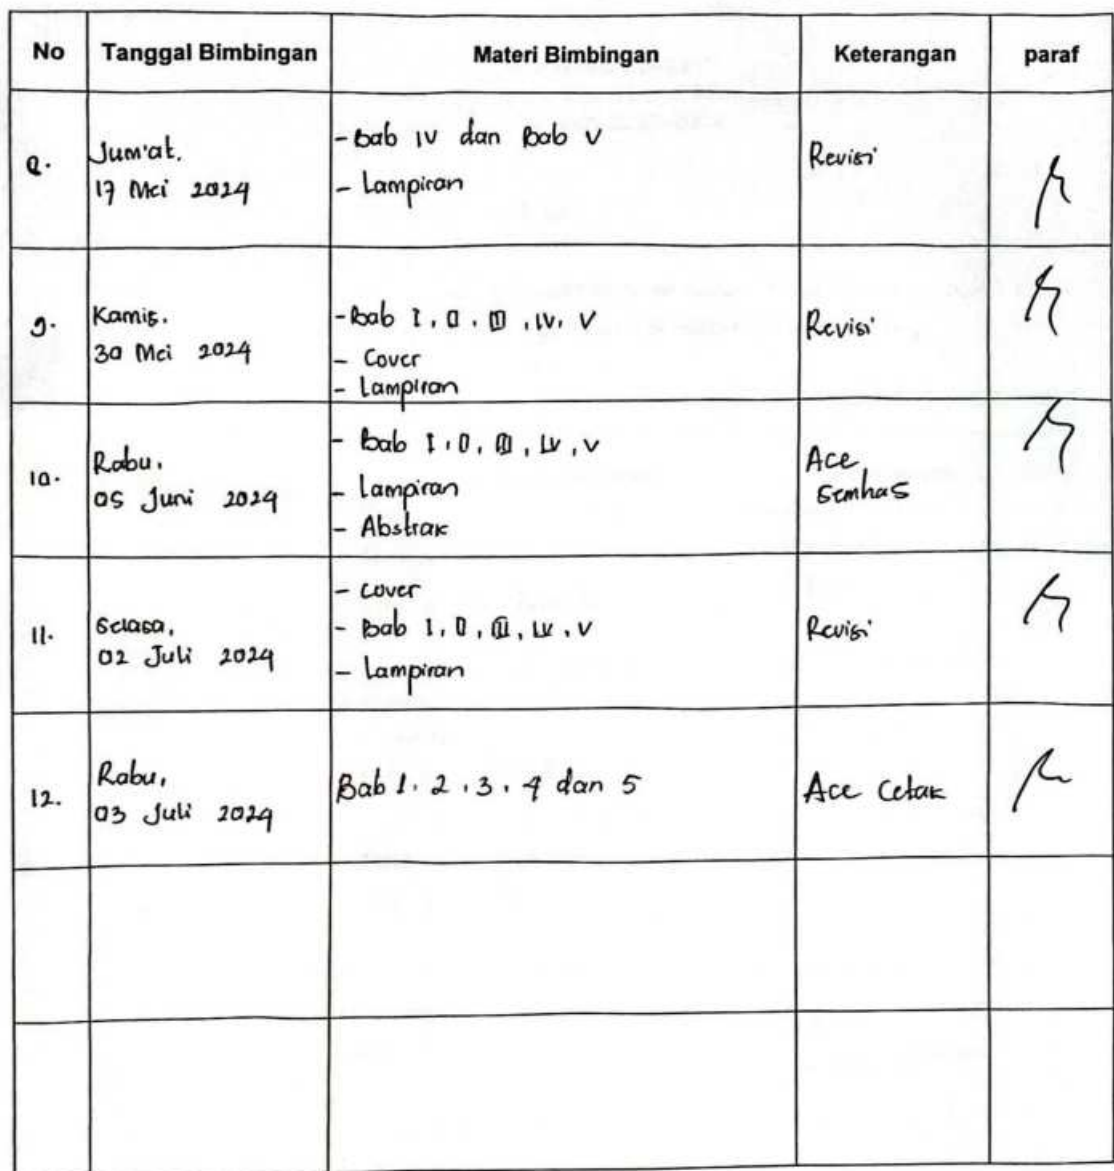 No Tanggal Bimbingan Materi Bimbingan Keterangan paraf
8. Jum'at, 17 Mei 2024 - Bab IV dan Bab V Revisi
- Lampiran
9. Kamis, 30 Mei 2024 - Bab I, II, III, IV, V Revisi
- Cover
- Lampiran
10. Rabu, 05 Juni 2024 - Bab I, II, III, IV, V Acc Semhas
- Lampiran
- Abstrak
11. Selasa, 02 Juli 2024 - Cover Revisi
- Bab I, II, III, IV, V
- Lampiran
12. Rabu, 03 Juli 2024 Bab 1, 2, 3, 4 dan 5 Acc Cetak